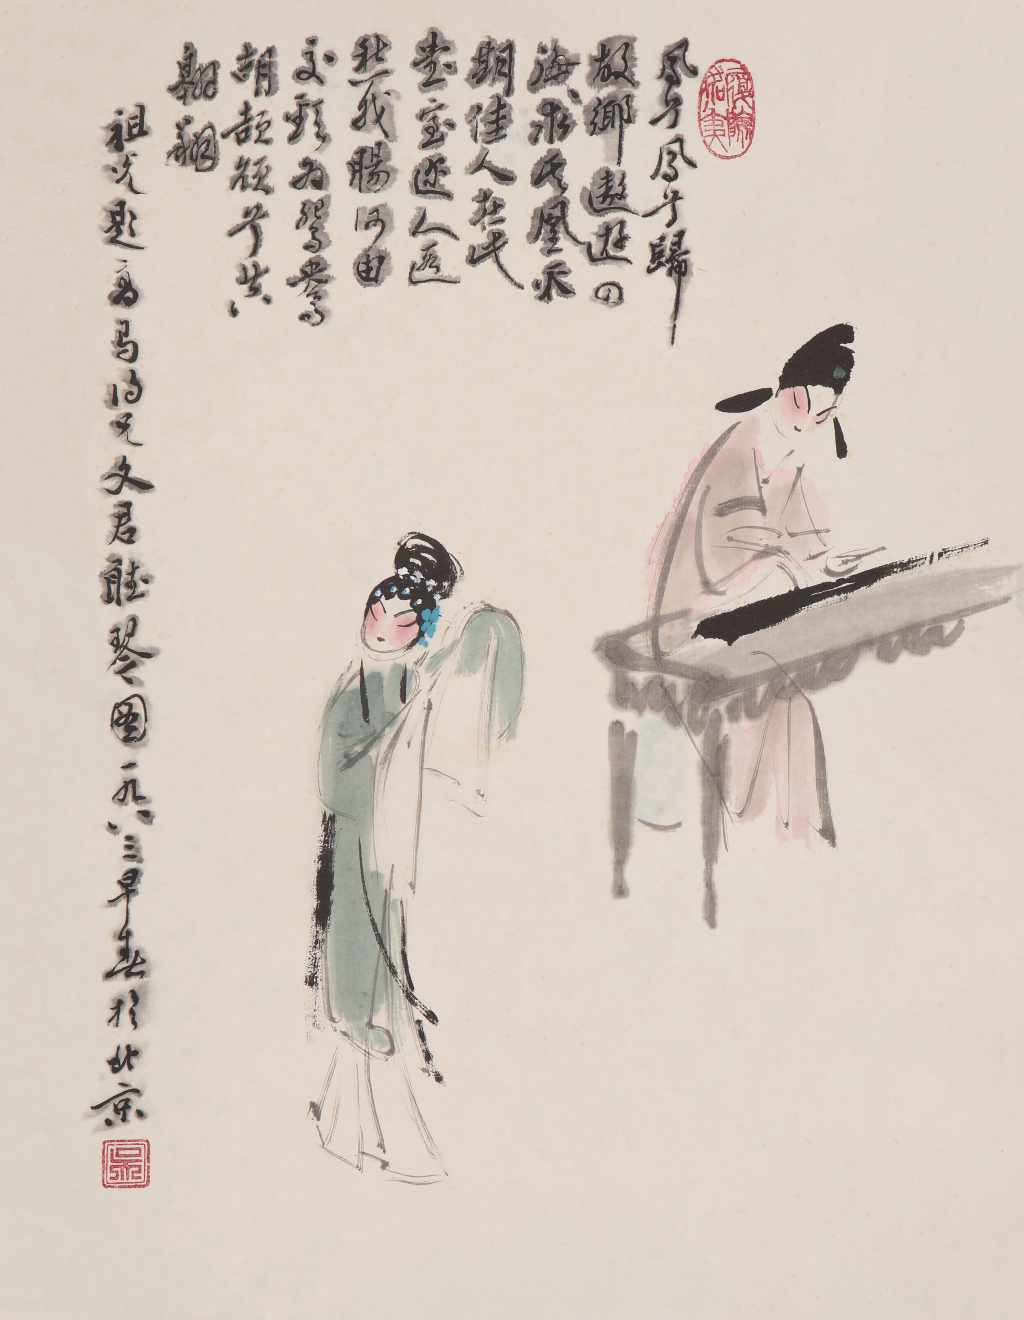 凤兮凤兮歸
故鄉遨遊四
海求其凰
期佳人在此
堂室迩人遐
愁我腸何由
交頸为鴛鴦
胡頡頏兮共
翱翔
祖光题高马得兄文君聽琴图一九八三早春於北京